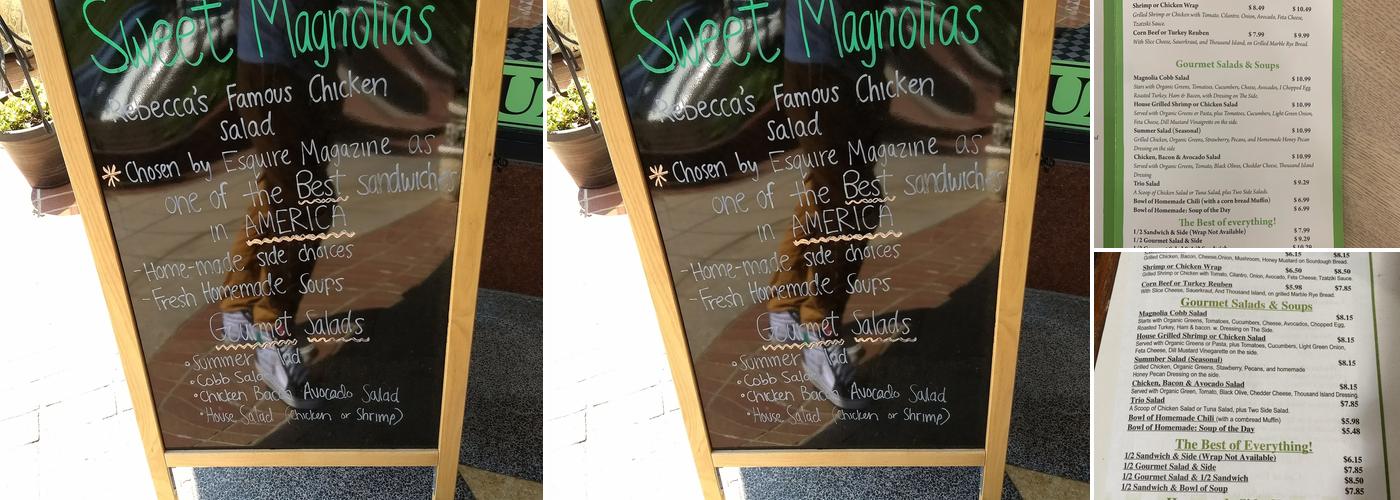 Sweet Magnolias
Rebecca's Famous Chicken
Salad
Chosen by Esquire Magazine as
one of the Best sandwiches
in AMERICA
-Home-made side choices
-Fresh Homemade Soups
Gourmet Salads
•Summer Salad
•Cobb Salad
•Chicken Bacon Avocado Salad
•House Salad (chicken or Shrimp)
Sweet Magnolias
Rebecca's Famous Chicken
Salad
Chosen by Esquire Magazine as
one of the Best sandwiches
in AMERICA
-Home-made side choices
-Fresh Homemade Soups
Gourmet Salads
•Summer Salad
•Cobb Salad
•Chicken Bacon Avocado Salad
•House Salad (chicken or Shrimp)
Shrimp or Chicken Wrap $ 8.49 $ 10.49
Grilled Shrimp or Chicken with Tomato, Cilantro, Onion, Avocado, Feta Cheese,
Tzatziki Sauce.
Corn Beef or Turkey Reuben $ 7.99 $ 9.99
With Slice Cheese, Sauerkraut, and Thousand Island, on Grilled Marble Rye Bread.
Gourmet Salads & Soups
Magnolia Cobb Salad $ 10.99
Stars with Organic Greens, Tomatoes, Cucumbers, Cheese, Avocados, 1 Chopped Egg,
Roasted Turkey, Ham & Bacon, with Dressing on The Side.
House Grilled Shrimp or Chicken Salad $ 10.99
Served with Organic Greens or Pasta, plus Tomatoes, Cucumbers, Light Green Onion,
Feta Cheese, Dill Mustard Vinaigrette on the side.
Summer Salad (Seasonal) $ 10.99
Grilled Chicken, Organic Greens, Strawberry, Pecans, and Homemade Honey Pecan
Dressing on the side
Chicken, Bacon & Avocado Salad $ 10.99
Served with Organic Greens, Tomato, Black Olives, Cheddar Cheese, Thousand Island
Dressing
Trio Salad $ 9.29
A Scoop of Chicken Salad or Tuna Salad, plus Two Side Salads.
Bowl of Homemade Chili (with a corn bread Muffin) $ 6.99
Bowl of Homemade: Soup of the Day $ 6.99
The Best of everything!
1/2 Sandwich & Side (Wrap Not Available) $ 7.99
1/2 Gourmet Salad & Side $ 9.29
$6.15 $8.15
Grilled Chicken, Bacon, Cheese,Onion, Mushroom, Honey Mustard on Sourdough Bread.
Shrimp or Chicken Wrap $6.50 $8.50
Grilled Shrimp or Chicken with Tomato, Cilantro, Onion, Avocado, Feta Cheese, Tzatziki Sauce.
Corn Beef or Turkey Reuben $5.98 $7.85
With Slice Cheese, Sauerkraut, And Thousand Island, on grilled Marble Rye Bread.
Gourmet Salads & Soups
Magnolia Cobb Salad $8.15
Starts with Organic Greens, Tomatoes, Cucumbers, Cheese, Avocados, Chopped Egg,
Roasted Turkey, Ham & bacon. w. Dressing on The Side.
House Grilled Shrimp or Chicken Salad $8.15
Served with Organic Greens or Pasta, plus Tomatoes, Cucumbers, Light Green Onion,
Feta Cheese, Dill Mustard Vinegarette on the side.
Summber Salad (Seasonal) $8.15
Grilled Chicken, Organic Greens, Stawberry, Pecans, and homemade
Honey Pecan Dressing on the side.
Chicken, Bacon & Avocado Salad $8.15
Served with Organic Green, Tomato, Black Olive, Chedder Cheese, Thousand Island Dressing.
Trio Salad $7.85
A Scoop of Chicken Salad or Tuna Salad, plus Two Side Salad.
Bowl of Homemade Chili (with a cornbread Muffin) $5.98
Bowl of Homemade: Soup of the Day $5.48
The Best of Everything!
1/2 Sandwich & Side (Wrap Not Available) $6.15
1/2 Gourmet Salad & Side $7.85
1/2 Gourmet Salad & 1/2 Sandwich $8.50
1/2 Sandwich & Bowl of Soup $7.85